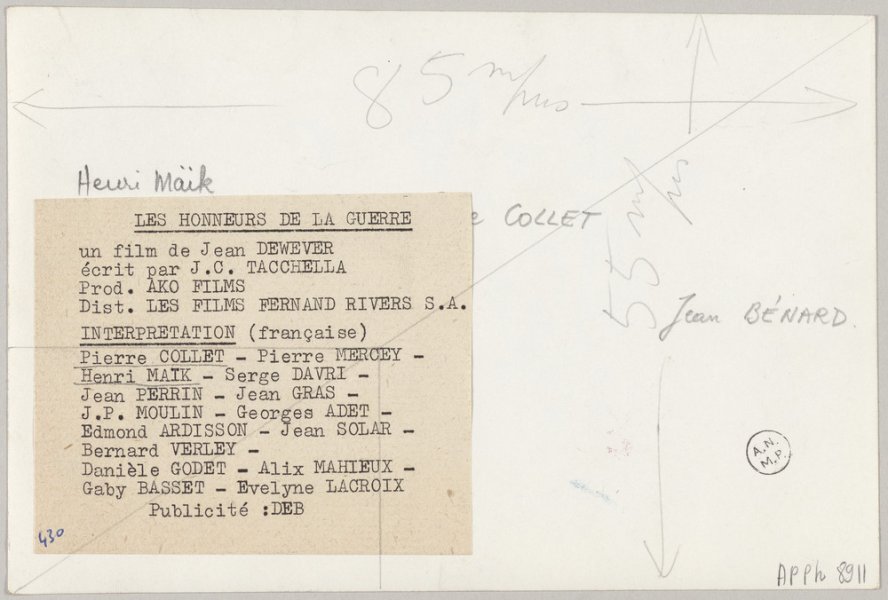 85 m/ms
Henri Maïk
COLLET
55 m/m
Jean BÉNARD.
LES HONNEURS DE LA GUERRE
un film de Jean DEWEVER
écrit par J.C. TACCHELLA
Prod. AKO FILMS
Dist. LES FILMS FERNAND RIVERS S.A.
INTERPRETATION (française)
Pierre COLLET - Pierre MERCEY -
Henri MAIK - Serge DAVRI -
Jean PERRIN - Jean GRAS -
J.P. MOULIN - Georges ADET -
Edmond ARDISSON - Jean SOLAR -
Bernard VERLEY -
Danièle GODET - Alix MAHIEUX -
Gaby BASSET - Evelyne LACROIX
Publicité :DEB
430
A.N.
M.P.
APPh 8911